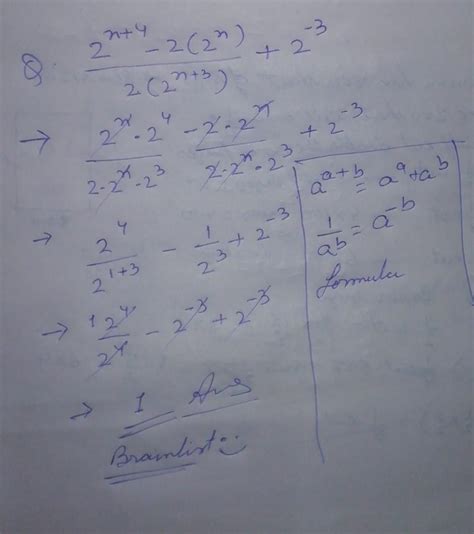 Q. (2^{n+4} - 2(2^n)) / (2(2^{n+3})) + 2^{-3}
→ (2^n · 2^4) / (2 · 2^n · 2^3) - (2 · 2^n) / (2 · 2^n · 2^3) + 2^{-3}
→ 2^4 / 2^{1+3} - 1 / 2^3 + 2^{-3}
→ 1 2^4 / 2^4 - 2^{-3} + 2^{-3}
→ 1 Ans
Brainlist
a^{a+b} = a^a + a^b
1 / a^b = a^{-b}
formula